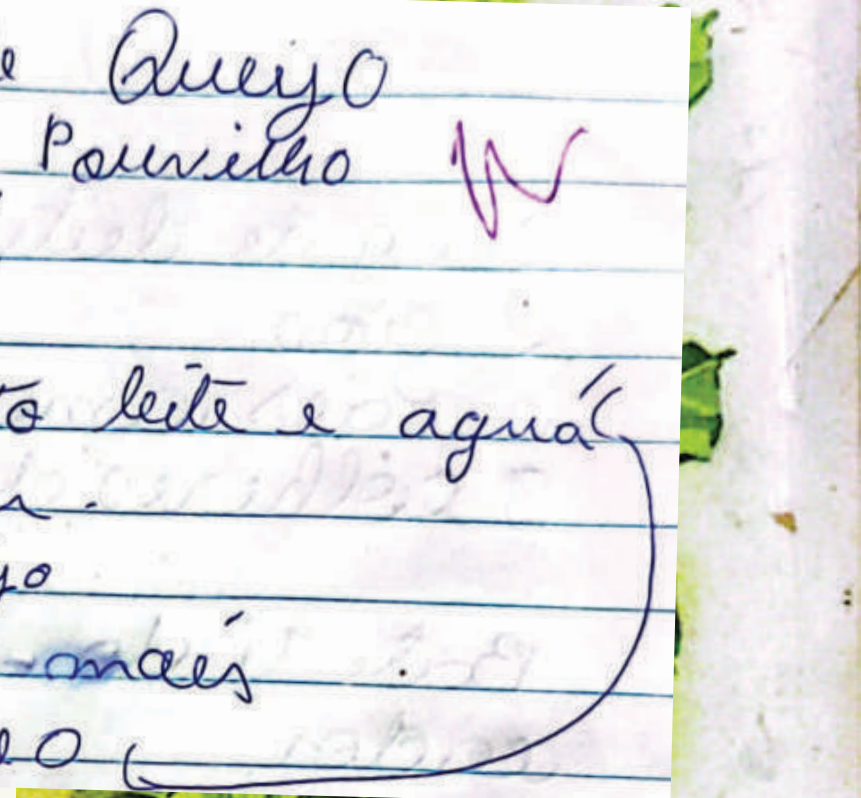 e Queijo
Pouvilho
to leite e aguá
r.
jo
mais
o